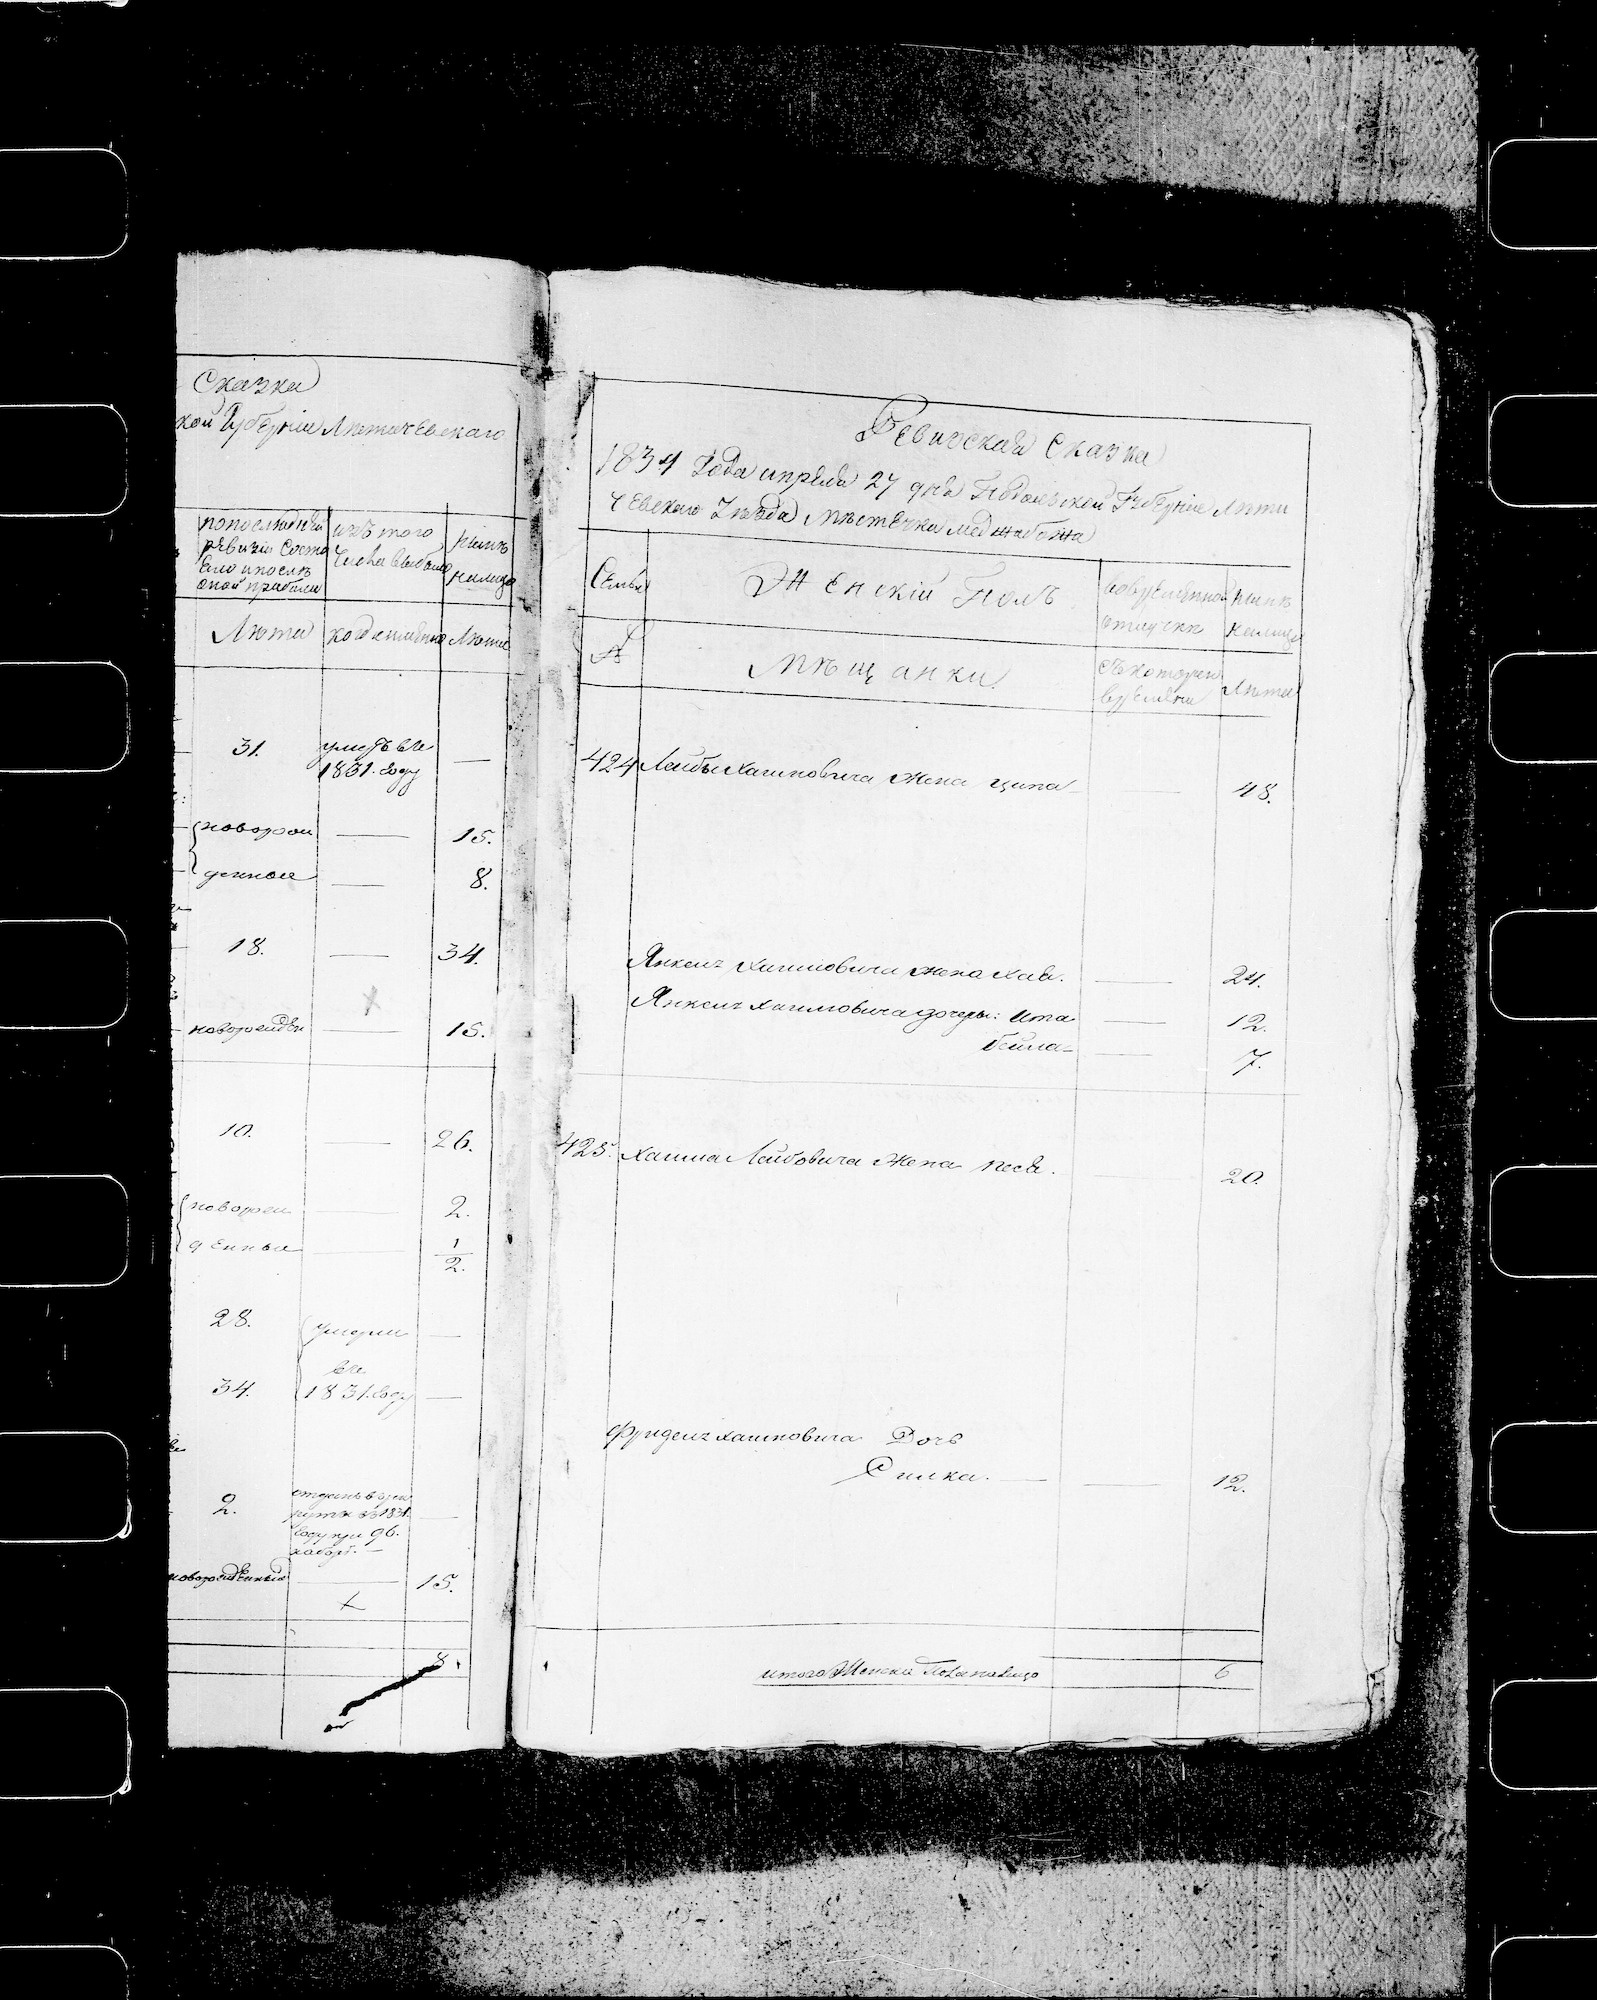 Сказка
кой Губерніи Летичевскаго
попоследней
ревизіи состо
яло и после
оной прибыли
изъ того
числа выбыло
нынѣ
налицо
Лѣта
когда имянно
Лѣта
31.
умеръ въ
1831. году
—
новорож
—
15.
денные
—
8.
18.
—
34.
новорожден
—
15.
10.
—
26.
новорож
—
2.
денные
—
1/2.
28.
умерли
—
въ
34.
1831. году
—
2.
отданъ в рек
руты въ 1831.
году при 96.
наборѣ. —
—
новорожденный
—
15.
8.
Ревиская Сказка
1834 Года апреля 27 дня Подольской Губерніи Лети
чевскаго Уезда местечка Меджибожа
Семьи
Женскій Полъ
вовременной
отлучки
нынѣ
налицо
№
Мѣщанки.
съ которого
времяни
Лѣта
424 Лейбы Хаимовича жена Ципа — — 48.
Янкеля Хаимовича жена Хава. — 24.
Янкеля Хаимовича дочери: Ита — 12.
Бейла — — 7.
425. Хаима Лейбовича жена Песя. — 20.
Фриделя Хаимовича Дочь
Силка. — — 12.
итого Женска Пола налицо 6